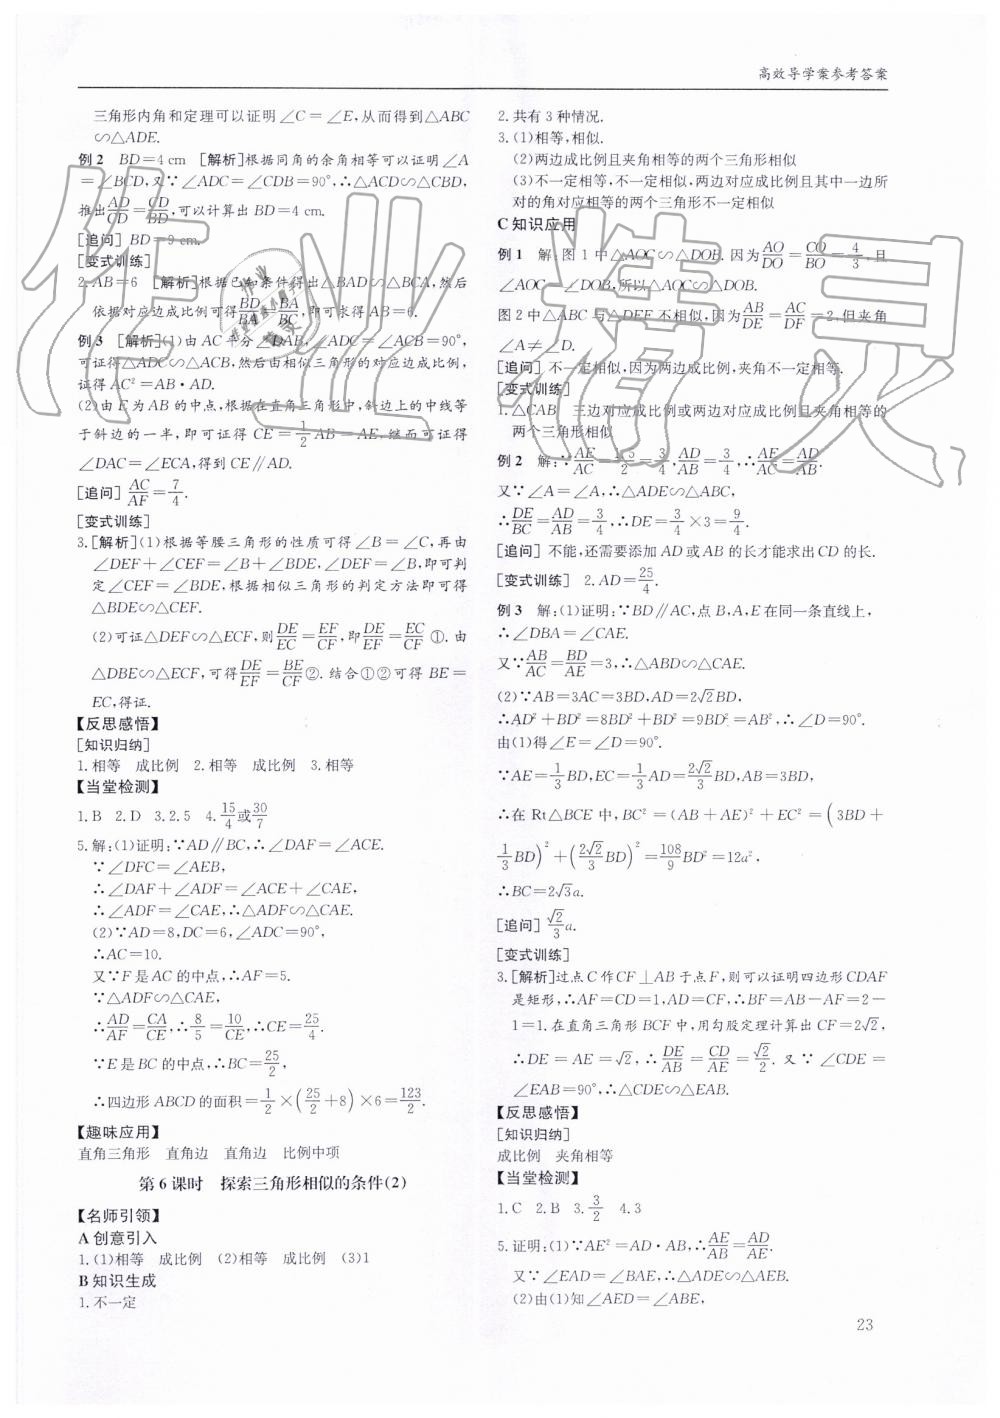 高效导学案参考答案
三角形内角和定理可以证明∠C=∠E,从而得到△ABC
∽△ADE.
例2 BD=4 cm [解析]根据同角的余角相等可以证明∠A
=∠BCD,又∵∠ADC=∠CDB=90°,∴△ACD∽△CBD,
推出AD/CD=CD/BD,可以计算出BD=4 cm.
[追问] BD=9 cm.
[变式训练]
2.AB=6 [解析]根据已知条件得出△BAD∽△BCA,然后
依据对应边成比例可得BD/BA=BA/BC,即可求得AB=6.
例3 [解析](1)由AC平分∠DAB,∠ADC=∠ACB=90°,
可证得△ADC∽△ACB,然后由相似三角形的对应边成比例,
证得AC²=AB·AD.
(2)由E为AB的中点,根据在直角三角形中,斜边上的中线等
于斜边的一半,即可证得CE=1/2AB=AE,继而可证得
∠DAC=∠ECA,得到CE∥AD.
[追问] AC/AF=7/4.
[变式训练]
3.[解析](1)根据等腰三角形的性质可得∠B=∠C,再由
∠DEF+∠CEF=∠B+∠BDE,∠DEF=∠B,即可判
定∠CEF=∠BDE,根据相似三角形的判定方法即可得
△BDE∽△CEF.
(2)可证△DEF∽△ECF,则DE/EC=EF/CF,即DE/EF=EC/CF①.由
△DBE∽△ECF,可得DE/EF=BE/CF②.结合①②可得BE=
EC,得证.
【反思感悟】
[知识归纳]
1.相等 成比例 2.相等 成比例 3.相等
【当堂检测】
1.B 2.D 3.2.5 4.15/4或30/7
5.解:(1)证明:∵AD∥BC,∴∠DAF=∠ACE.
∵∠DFC=∠AEB,
∴∠DAF+∠ADF=∠ACE+∠CAE,
∴∠ADF=∠CAE,∴△ADF∽△CAE.
(2)∵AD=8,DC=6,∠ADC=90°,
∴AC=10.
又∵F是AC的中点,∴AF=5.
∵△ADF∽△CAE,
∴AD/AF=CA/CE,∴8/5=10/CE,∴CE=25/4.
∵E是BC的中点,∴BC=25/2,
∴四边形ABCD的面积=1/2×(25/2+8)×6=123/2.
【趣味应用】
直角三角形 直角边 直角边 比例中项
第6课时 探索三角形相似的条件(2)
【名师引领】
A 创意引入
1.(1)相等 成比例 (2)相等 成比例 (3)1
B 知识生成
1.不一定
2.共有3种情况.
3.(1)相等,相似.
(2)两边成比例且夹角相等的两个三角形相似
(3)不一定相等,不一定相似,两边对应成比例且其中一边所
对的角对应相等的两个三角形不一定相似
C 知识应用
例1 解:图1中△AOC∽△DOB.因为AO/DO=CO/BO=4/3,且
∠AOC=∠DOB,所以△AOC∽△DOB.
图2中△ABC与△DEF不相似,因为AB/DE=AC/DF=2,但夹角
∠A≠∠D.
[追问] 不一定相似,因为两边成比例,夹角不一定相等.
[变式训练]
1.△CAB 三边对应成比例或两边对应成比例且夹角相等的
两个三角形相似
例2 解:∵AE/AC=1.5/2=3/4,AD/AB=3/4,∴AE/AC=AD/AB.
又∵∠A=∠A,∴△ADE∽△ABC,
∴DE/BC=AD/AB=3/4,∴DE=3/4×3=9/4.
[追问] 不能,还需要添加AD或AB的长才能求出CD的长.
[变式训练] 2.AD=25/4.
例3 解:(1)证明:∵BD∥AC,点B,A,E在同一条直线上,
∴∠DBA=∠CAE.
又∵AB/AC=BD/AE=3,∴△ABD∽△CAE.
(2)∵AB=3AC=3BD,AD=2√2BD,
∴AD²+BD²=8BD²+BD²=9BD²=AB²,∴∠D=90°.
由(1)得∠E=∠D=90°.
∵AE=1/3BD,EC=1/3AD=2√2/3BD,AB=3BD,
∴在Rt△BCE中,BC²=(AB+AE)²+EC²=(3BD+
1/3BD)²+(2√2/3BD)²=108/9BD²=12a²,
∴BC=2√3a.
[追问] √2/3a.
[变式训练]
3.[解析]过点C作CF⊥AB于点F,则可以证明四边形CDAF
是矩形,∴AF=CD=1,AD=CF,∴BF=AB-AF=2-
1=1.在直角三角形BCF中,用勾股定理计算出CF=2√2,
∴DE=AE=√2,∴DE/AB=CD/AE=√2/2.又∵∠CDE=
∠EAB=90°,∴△CDE∽△EAB.
【反思感悟】
[知识归纳]
成比例 夹角相等
【当堂检测】
1.C 2.B 3.3/2 4.3
5.证明:(1)∵AE²=AD·AB,∴AE/AB=AD/AE.
又∵∠EAD=∠BAE,∴△ADE∽△AEB.
(2)由(1)知∠AED=∠ABE,
23
作业精灵